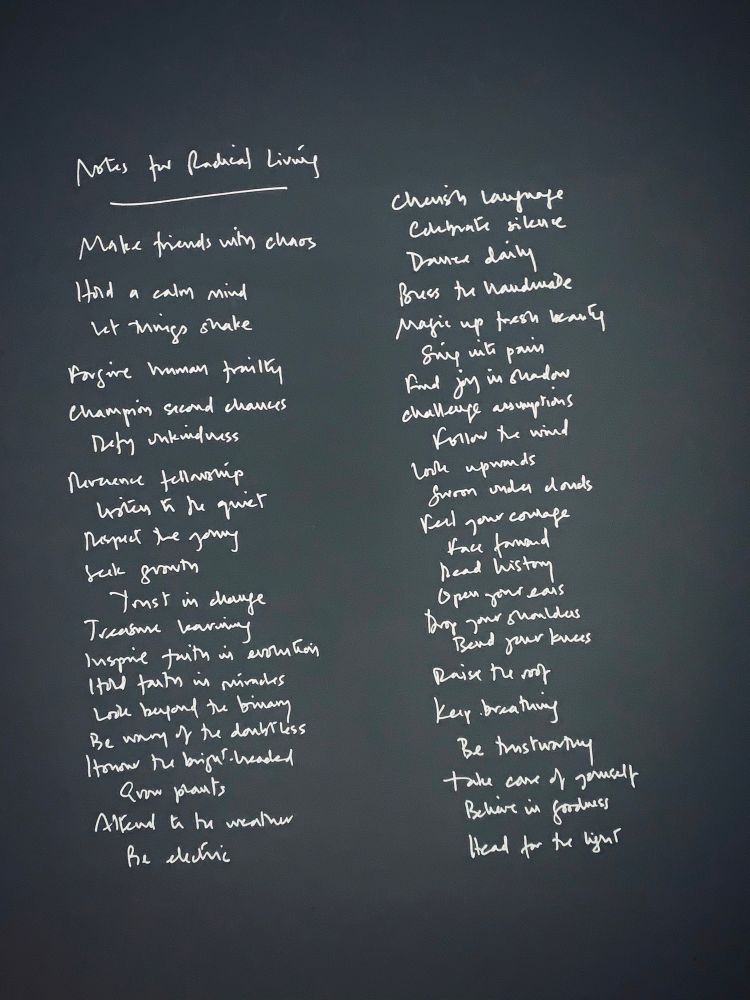 Notes for Radical Living
Make friends with chaos
Hold a calm mind
Let things shake
Forgive human frailty
Champion second chances
Defy unkindness
Reverence fellowship
Listen to the quiet
Respect the young
Seek growth
Trust in change
Treasure learning
Inspire faith in evolution
Hold faith in miracles
Look beyond the binary
Be wary of the doubtless
Honour the bright-headed
Grow plants
Attend to the weather
Be electric
Cherish language
Celebrate silence
Dance daily
Bless the handmade
Magic up fresh beauty
Sing into pain
Find joy in shadow
Challenge assumptions
Follow the wind
Look upwards
Swoon under clouds
Feel your courage
Face forward
Read history
Open your ears
Drop your shoulders
Bend your knees
Raise the roof
Keep breathing
Be trustworthy
Take care of yourself
Believe in goodness
Head for the light